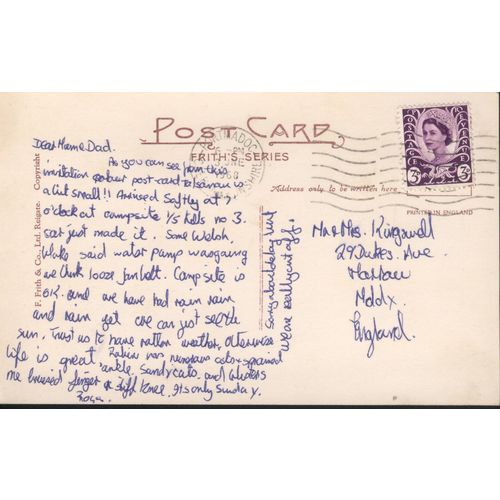 POST CARD
FRITH'S SERIES
Address only to be written here
PRINTED IN ENGLAND
F. Frith & Co., Ltd. Reigate.
Copyright
POSTAGE
REVENUE
3D
Dear Mum & Dad.
As you can see from this
invitation post-card
a bit small!! Arrived Safely at 7
o'clock at campsite 1/5 kills no 3.
just made it. Some Welsh
bloke said water pump was going
we think Campsite is
O.K. and we have had rain rain
and rain yet we can just see the
sun. Trust us to have rotten weather, otherwise
life is great. Robin has cuts & sprained
ankle, Sandy cuts, and blisters
me bruised finger & stiff knee. Its only Sunday.
Roger.
sorry about delay but
we are really cut off.
Mr & Mrs. Kingswell
29 Dukes Ave
Harrow
Middx.
England.